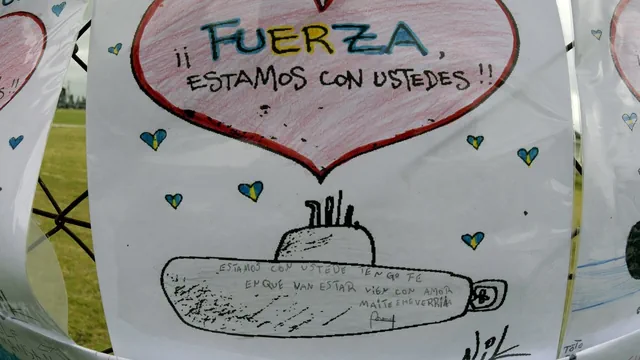 ¡¡ FUERZA,
ESTAMOS CON USTEDES !!
ESTAMOS CON USTEDE TENGO FE
EN QUE VAN ESTAR VIEN CON AMOR
MAITE
NIK
TOTO